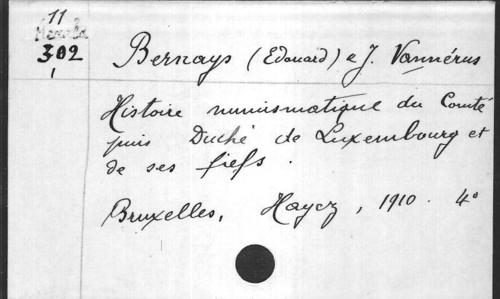 11
302
Bernays (Edouard) e J. Vannérus
Histoire numismatique du Comté
puis Duché de Luxembourg et
de ses fiefs.
Bruxelles, Hayez, 1910. 4º